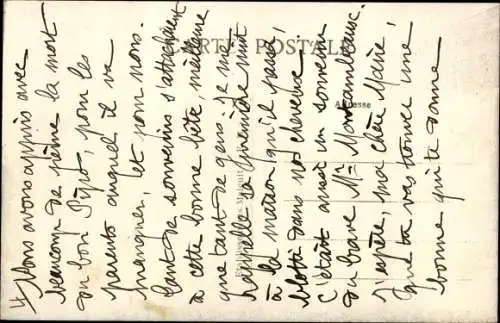 4/ Nous avons appris avec
beaucoup de peine la mort
du bon Pyro, pour les
parents auquel il va
manquer, et pour nous.
Tant de souvenirs s'attachaient
à cette bonne bête, meilleure
que tant de gens. Je me
rappelle la première nuit
à la maison qu'il passa,
blotti dans nos cheveux:
C'était aussi un souvenir
du brave Mr
J'espère, ma chère Marie,
que tu vas trouver une
bonne qui te donne
CARTE POSTALE
Adresse